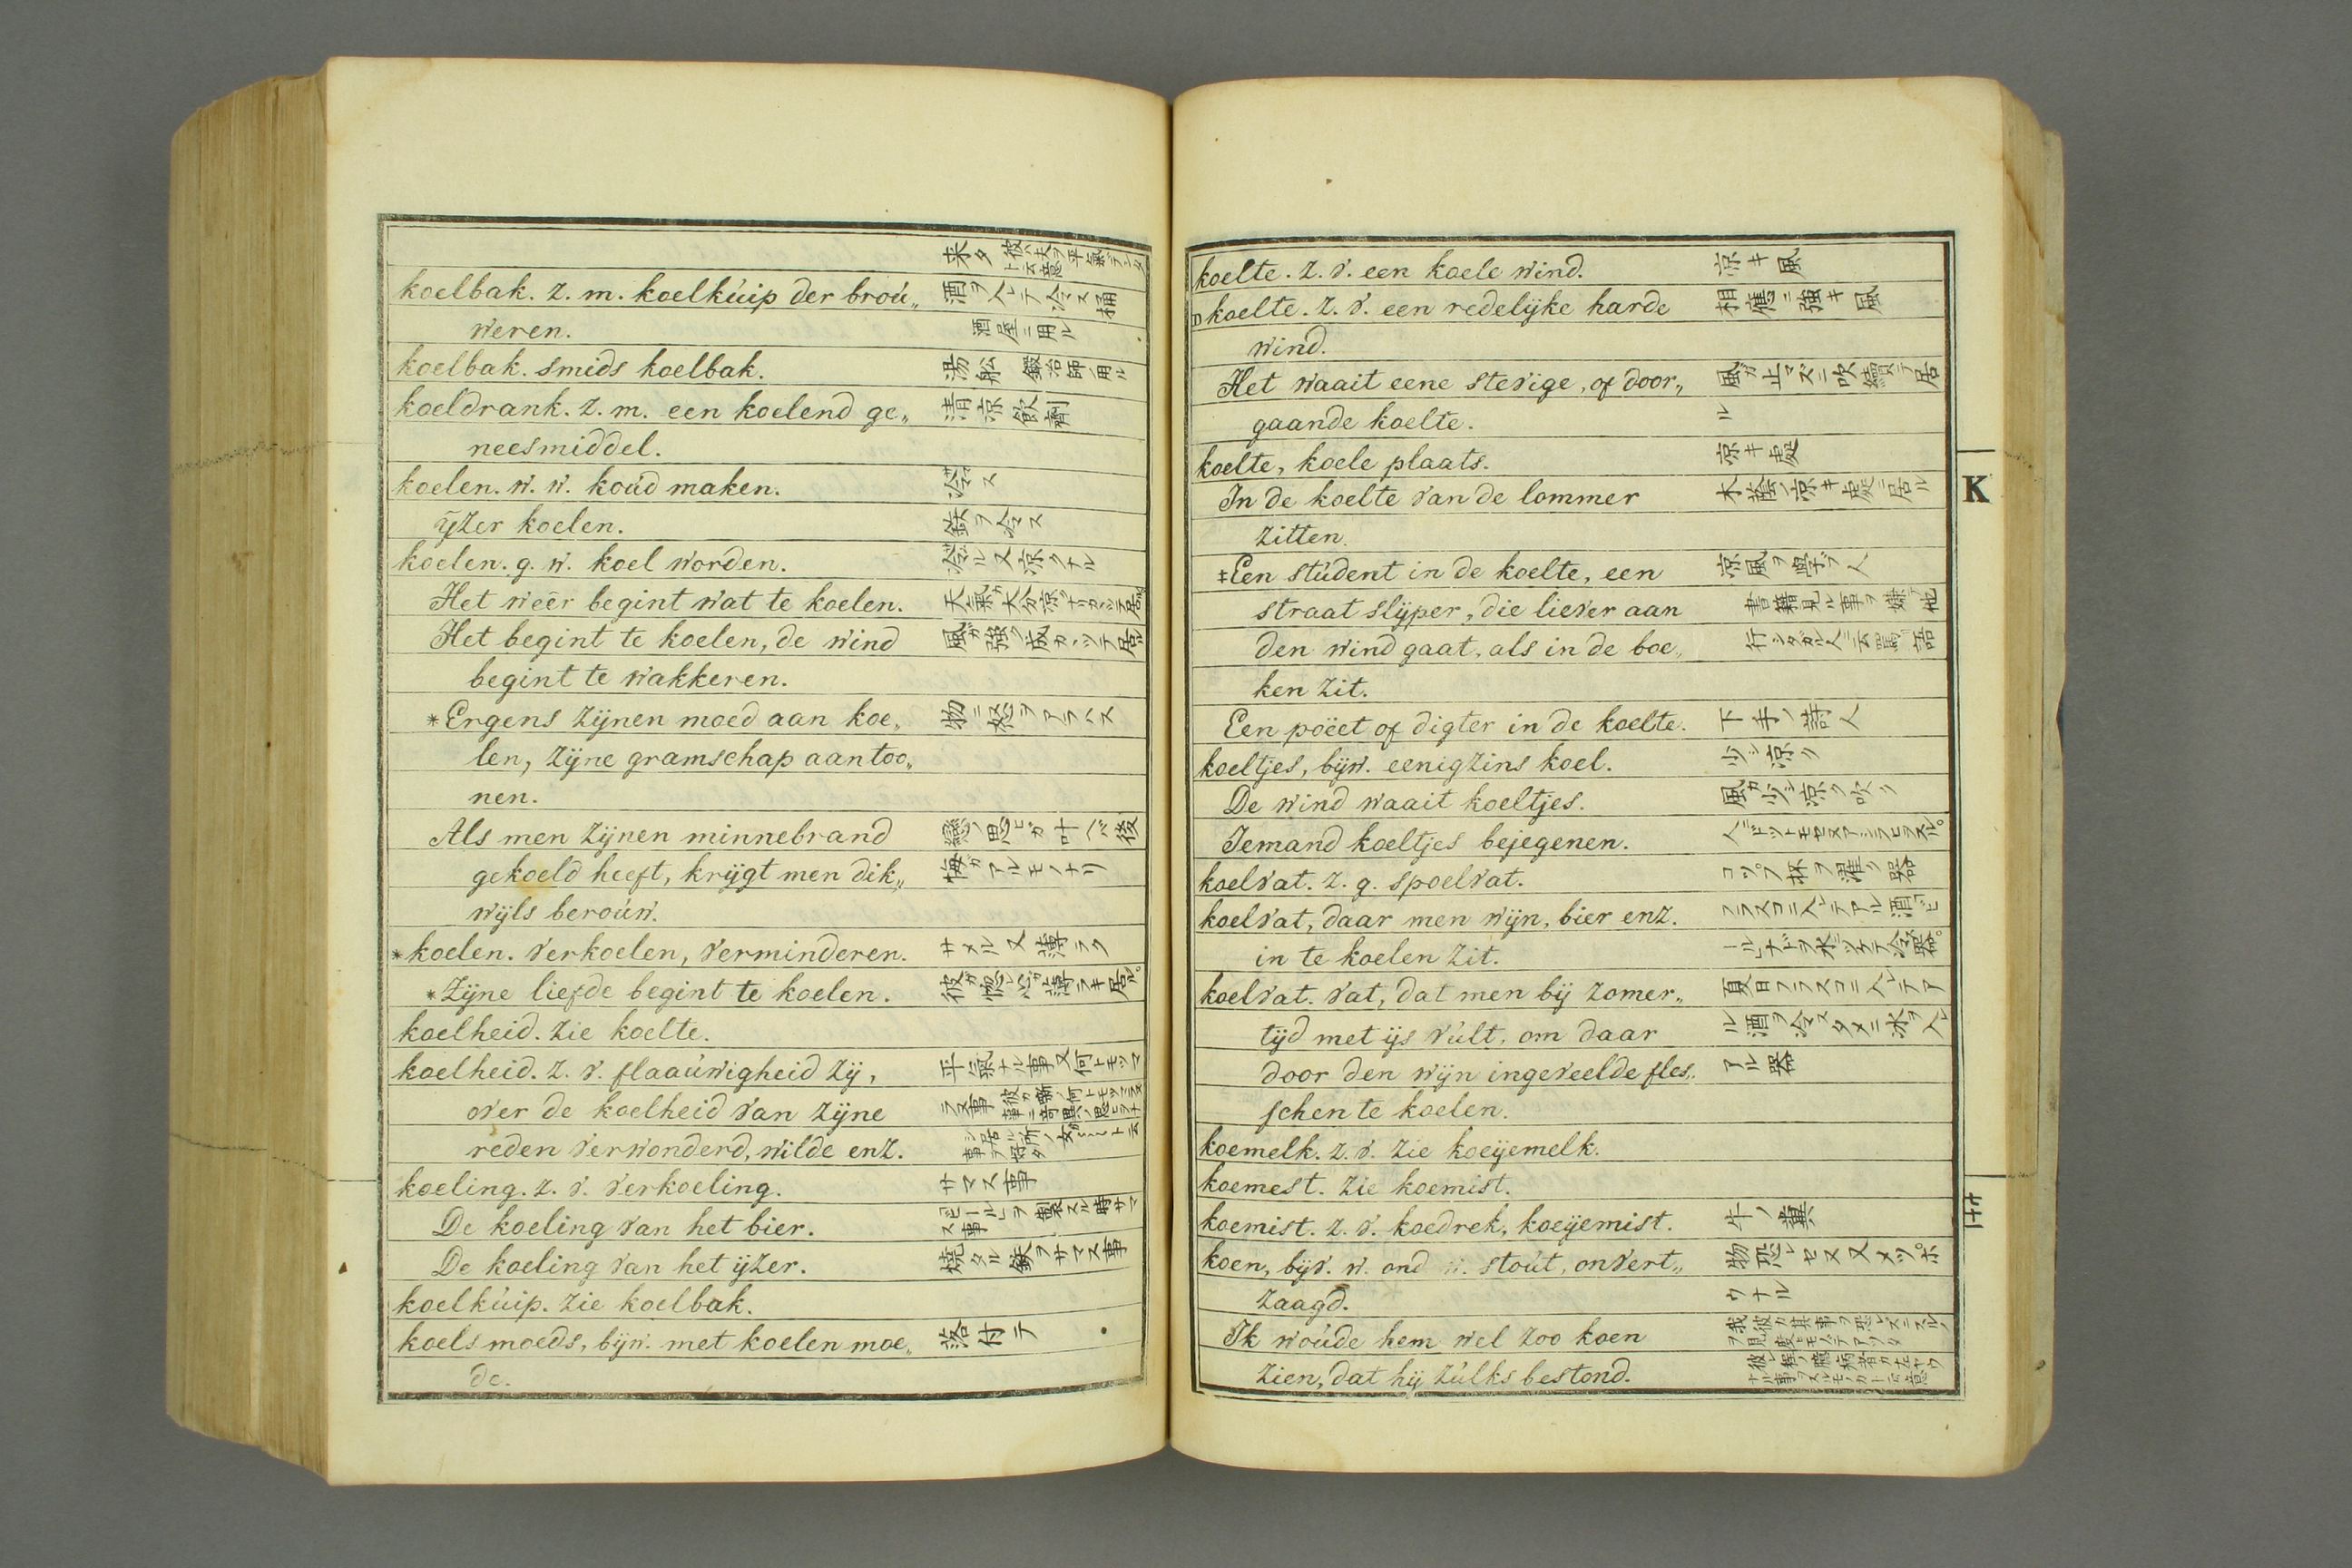 来タ 彼ハ夫ヲ平氣デシタト云意
koelbak. z. m. koelkúip der broú„ 酒ヲ入レテ冷ス桶
weren. 酒屋ニ用ル
koelbak. smids koelbak. 湯舩 鍛冶師ノ用ル
koeldrank. z. m. een koelend ge„ 清凉飲劑
neesmiddel.
koelen. w. w. koúd maken. 冷ス
ÿzer koelen. 鉄ヲ冷ス
koelen. g. w. koel worden. 冷ル又凉クナル
Het weêr begint wat te koelen. 天氣ガ大分凉クナリカヽツテ居ル
Het begint te koelen, de wind 風ガ強ク成カヽツテ居ル
begint te wakkeren.
*Ergens zijnen moed aan koe„ 物ニ怒ヲアラハス
len, zijne gramschap aantoo„
nen.
Als men zijnen minnebrand 戀ノ思ヒガ叶ヘバ後
gekoeld heeft, krijgt men dik„ 悔ガアルモノナリ
wijls beroúw.
*koelen. verkoelen, verminderen. サメル又薄ラク
*Zijne liefde begint te koelen. 彼ガ惚レ心ガ薄ラキ居ル。
koelheid. zie koelte.
koelheid. z. v. flaaúwigheid zij, 平氣ナル事又何トモヲマ
over de koelheid van zijne ラヌ事
reden verwonderd, wilde enz.
koeling. z. v. verkoeling. サマス事
De koeling van het bier. 「ビール」ヲ製スル時サマス事
De koeling van het ijzer. 焼タル鉄ヲサマス事
koelkúip. zie koelbak.
koelsmoeds, bijw. met koelen moe„ 落付テ
de.
koelte. z. v. een koele wind. 凉キ風
koelte. z. v. een redelijke harde 相應ニ強キ風
wind.
Het waait eene stevige, of door„ 風ガ止マズニ吹續テ居
gaande koelte. ル
koelte, koele plaats. 凉キ處
In de koelte van de lommer 木蔭ノ凉キ處ニ居ル
zitten.
‡Een stúdent in de koelte, een 凉風ヲ學ブ人
straat slijper, die liever aan 書籍見ル事ヲ嫌ヒ他
den wind gaat, als in de boe„ 行シタガル人ニ云罵語
ken zit.
Een poëet of digter in de koelte. 下手ノ詩人
koeltjes, bijw. eenigzins koel. 少シ凉ク
De wind waait koeltjes. 風ガ少シ凉ク吹ク
Iemand koeltjes bejegenen. 人ニドットモセヌアシラヒヲスル。
koelvat. z. g. spoelvat. コップ杯ヲ濯ク器
koelvat, daar men wijn, bier enz. フラスコニ入レテアル酒「ビ
in te koelen zit. ール」ナドヲ水ニツケテ冷ス器。
koelvat. vat, dat men bij zomer„ 夏日フラスコニ入レテア
tijd met ijs vúlt, om daar ル酒ヲ冷スタメニ氷ヲ入レ
door den wijn ingeveelde fles„ アル器
schen te koelen.
koemelk. z. v. zie koeijemelk.
koemest. zie koemist.
koemist. z. v. koedrek, koeijemist. 牛ノ糞
koen, bijv. w. ond w. stoút, onvert„ 物恐レセヌ又メッポ
zaagd. ウナル
Ik woúde hem wel zoo koen 我彼カ其事ヲ恐レズニスルノヲ見度ヒモノデアッタ
zien, dat hij zúlks bestond.
K